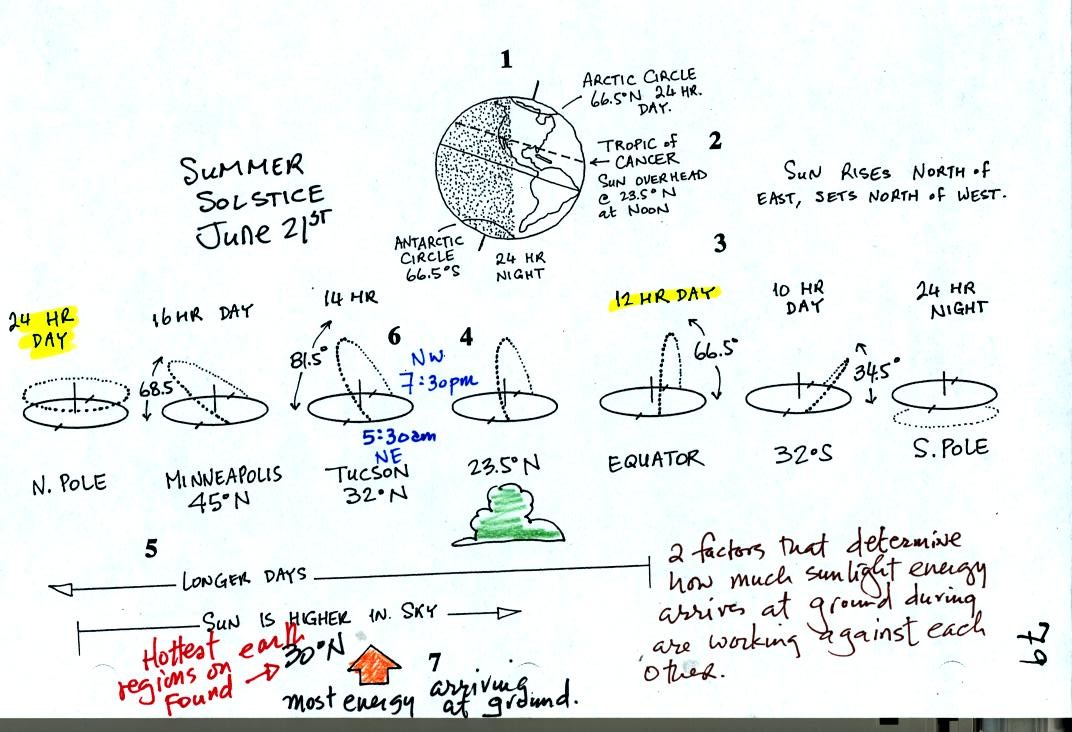 1
ARCTIC CIRCLE
66.5°N 24 HR.
DAY.
TROPIC of
CANCER
SUN OVERHEAD
@ 23.5°N
at NOON
2
SUMMER
SOLSTICE
June 21ST
SUN RISES NORTH of
EAST, SETS NORTH of WEST.
ANTARCTIC
CIRCLE
66.5°S
24 HR
NIGHT
3
24 HR
DAY
16 HR DAY
14 HR
12 HR DAY
10 HR
DAY
24 HR
NIGHT
68.5
81.5°
6
NW
7:30pm
4
66.5°
34.5°
5:30am
NE
N. POLE
MINNEAPOLIS
45°N
TUCSON
32°N
23.5°N
EQUATOR
32°S
S. POLE
5
LONGER DAYS
SUN IS HIGHER IN SKY
Hottest
regions on earth
found
30°N
7
most energy arriving
at ground.
2 factors that determine
how much sunlight energy
arrives at ground during
are working against each
other.
79